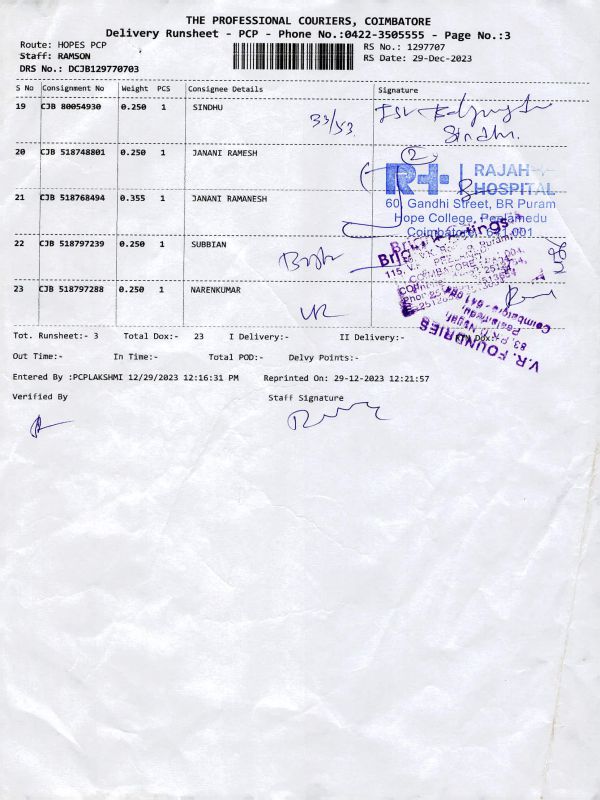 THE PROFESSIONAL COURIERS, COIMBATORE
Delivery Runsheet - PCP - Phone No.:0422-3505555 - Page No.:3
Route: HOPES PCP
RS No.: 1297707
Staff: RAMSON
RS Date: 29-Dec-2023
DRS No.: DCJB129770703
S No Consignment No Weight PCS Consignee Details Signature
19 CJB 80054930 0.250 1 SINDHU
33/53
Sindhu.
20 CJB 518748801 0.250 1 JANANI RAMESH
2
R+ RAJAH
HOSPITAL
21 CJB 518768494 0.355 1 JANANI RAMANESH
60, Gandhi Street, BR Puram
Hope College, Peelamedu
Coimbatore, 641 001
22 CJB 518797239 0.250 1 SUBBIAN
23 CJB 518797288 0.250 1 NARENKUMAR
V.R. FOUNDRIES
Tot. Runsheet:- 3 Total Dox:- 23 I Delivery:- II Delivery:-
Out Time:- In Time:- Total POD:- Delvy Points:-
Entered By :PCPLAKSHMI 12/29/2023 12:16:31 PM Reprinted On: 29-12-2023 12:21:57
Verified By Staff Signature